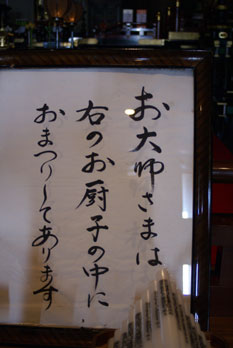 お大師さまは
右のお厨子の中に
おまつりしてあります